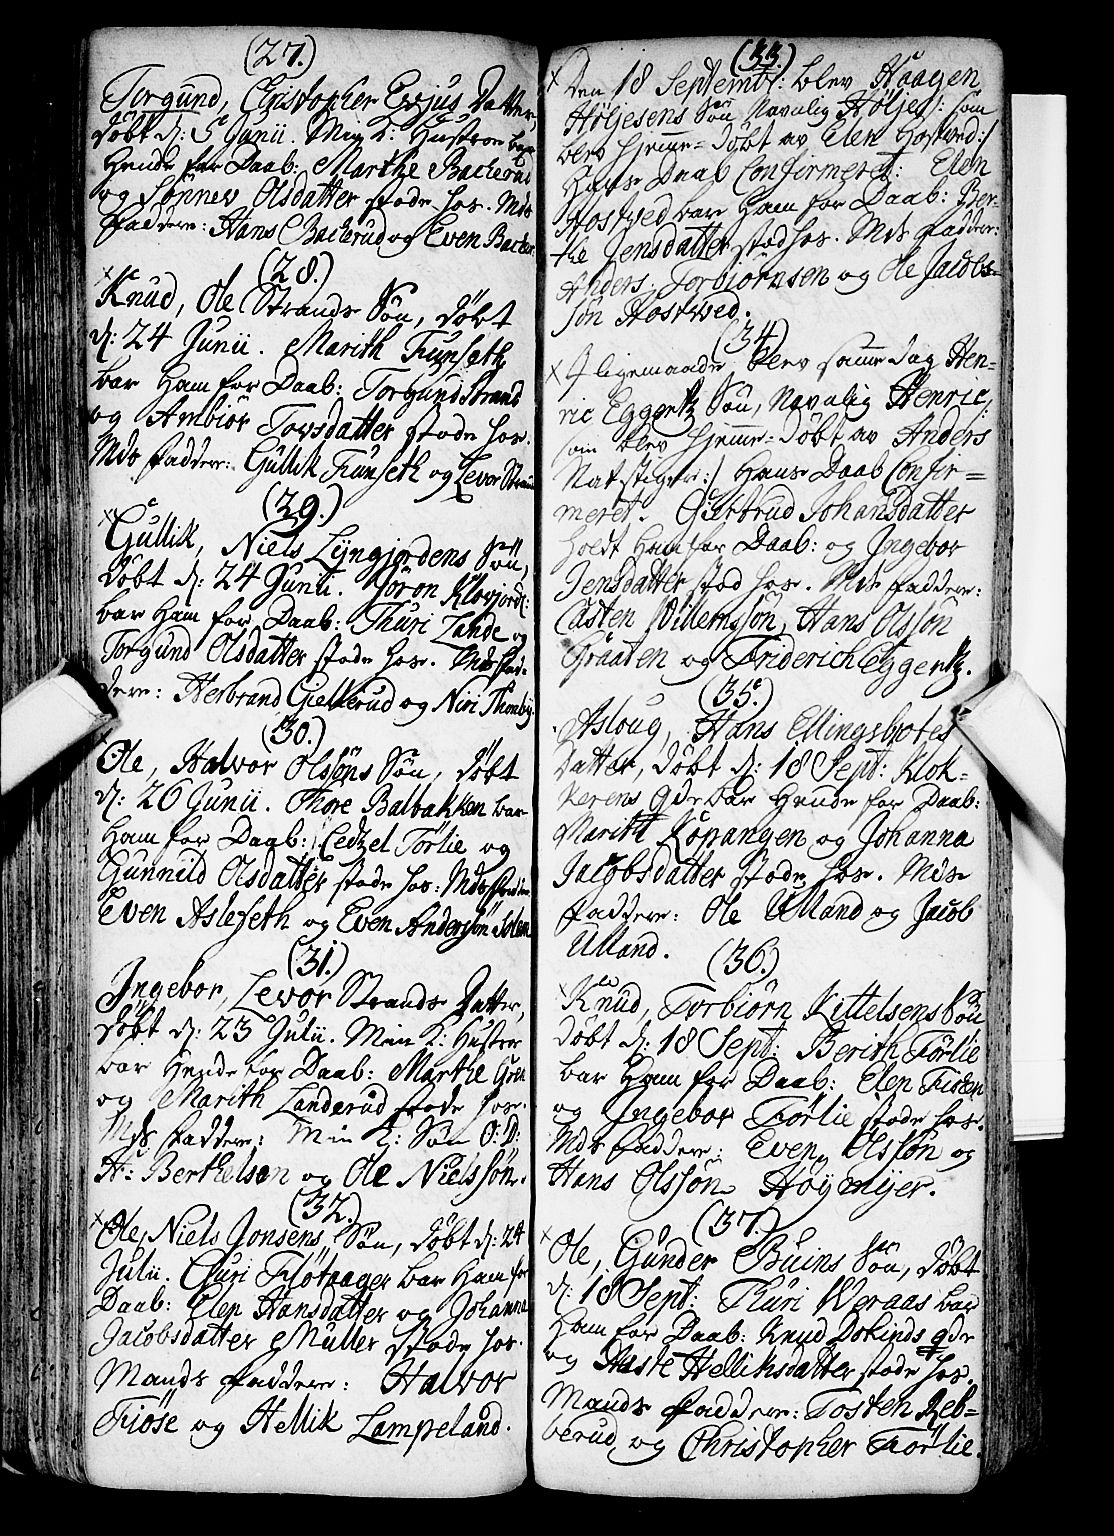 (27.)
Torgund, Christopher Evjus Datter,
Döbt d: 5 Junii. Min K: Hustroe bar
Hende for Daab: Marthe Bacherud
og Sønnev Olsdatter stode hos. Mds
Faddere: Hans Bacherud og Even Backer
(28.)
Knud, Ole Strands Søn, döbt
d: 24 Junii. Marith Funseth
bar Ham for Daab: Torgund Strand
og Ambiör Tovsdatter stode hos.
Mds Faddere: Gullik Funseth og Levor Strand
(29.)
Gullik, Niels Lyngjordens Søn,
döbt d: 24 Junii. Jöron Klovjord:
bar Ham for Daab: Thuri Lande og
Torgund Olsdatter stode hos. Mds Fad-
dere: Herbrand Giellerud og Niri Thomby.
(30.)
Ole, Halvor Olssöns Søn, döbt
d: 26 Junii. Thore Balbakken bar
Ham for Daab: Cedzel Törlie og
Gunnild Olsdatter stode hos: Mds Faddere
Even Aslefeth og Even Andersön
(31.)
Ingebor, Levor Strands Datter,
döbt d: 23 Julii. Min K: Hustroe
bar Hende for Daab: Marthe Gren
og Marith Landerud stode hos.
Mds Faddere: Min K: Søn O: D:
H: Berthelsen og Ole Nielssön.
(32.)
Ole, Niels Jonsens Søn, döbt d: 24
Julii. Guri Flötaager bar Ham for
Daab: Elen Hansdatter og Johanna
Jacobsdatter Müller stode hos.
Mands Faddere: Halvor
Fiöse og Hellik Lampeland.
(33.)
Den 18 Septembr: blev Haagen
Höljesens Søn Navnlig Höljes /: som
blev hjemme-döbt av Elen Hostved:/
Hans Daab Confirmeret: Elen
Hostved bar Ham for Daab: Ber-
the Jensdatter stod hos. Mds Faddere:
Anders Torbiörnsen og Ole Jacobs-
søn Hostved.
(34.)
I ligemaade blev samme dag Hen-
ric Eggertz Søn, Navnlig Henric,
som blev hjemme-döbt av Anders
Natstiger:/ Hans Daab Confir-
meret. Giertrud Johansdatter
holdt Ham for Daab: og Ingebor
Jensdatter stod hos. Mds Faddere:
Casten Willemssön, Hans Olssön
Graaten og Friderich Eggertz.
(35.)
Asloug, Hans Ellingsbotes
Datter, döbt d: 18 Sept: Klok-
kerens Qde bar Hende for Daab:
Marith Kopangen og Johanna
Jacobsdatter stode hos. Mds
Faddere: Ole Ulland og Jacob
Ulland.
(36.)
Knud, Torbiörn Kittelsens Søn
döbt d: 18 Sept: Berith Törlie
bar Ham for Daab: Elen Tisten
og Ingebor Törlie stode hos.
Mds Faddere: Even Olssön og
Hans Olssön Höymyer.
(37.)
Ole, Gunder Buins Søn, döbt
d: 18 Sept: Thuri Weraas bar
Ham for Daab: Knud Dokinds qde
og Aaste Helliksdatter stode hos.
Mands Faddere: Tosten Reb-
berud og Christopher Törlie.